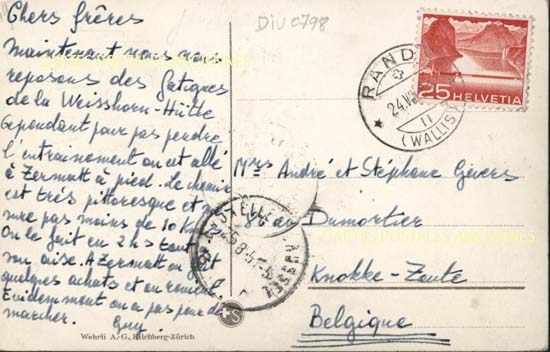 Chers frères
DIV 0798
Maintenant nous nous
reposons des fatigues
de la Weisshorn-Hütte
Cependant pour pas perdre
l'entraînement on est allé
à Zermatt à pied. Le chemin
est très pittoresque et
sure pas moins de 10 Km
On le fait en 2 h 1/2 tout
son aise. A Zermatt on fit
quelques achats et on
Evidemment on a pas peur de
marcher. Guy
25 HELVETIA
RAND
24.VII
11
(WALLIS)
Mrs André et Stéphane Gevers
de Dumortier
Knokke-Zoute
Belgique
Wehrli A.-G., Kilchberg-Zürich